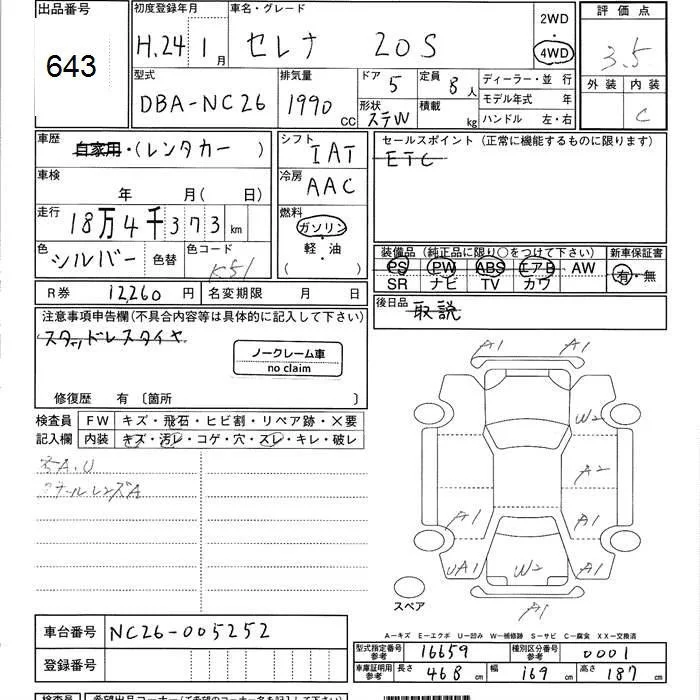 出品番号
643
初度登録年月
H.24 1月
車名・グレード
セレナ 20S
2WD
4WD
評価点
3.5
外装 内装
C
型式
DBA-NC26
排気量
1990 CC
ドア 5
形状 ステW
定員 8人
積載 kg
ディーラー・並行
モデル年式 年
ハンドル 左・右
車歴
自家用・(レンタカー )
車検
年 月( 日)
走行
18万4千373km
色
シルバー 色替
色コード
K51
シフト
IAT
冷房
AAC
燃料
ガソリン
・
軽・油
( )
セールスポイント(正常に機能するものに限ります)
ETC
装備品(純正品に限り○をつけて下さい) 新車保証書
PS PW ABS エアB AW
SR ナビ TV カワ
有・無
後日品
取説
R券 12,260円 名変期限 月 日
注意事項申告欄(不具合内容等は具体的に記入して下さい)
スタッドレスタイヤ
ノークレーム車
no claim
修復歴 有〔箇所 〕
検査員
記入欄
FW キズ・飛石・ヒビ割・リペア跡・×要
内装 キズ・汚レ・コゲ・穴・スレ・キレ・破レ
A1 A1
W2
A2
A1 A1
UA1 W2 A1
A1
スペア
A-キズ E-エクボ U-凹み W-補修跡 S-サビ C-腐食 XX-交換済
車台番号 NC26-005252
登録番号
型式指定番号
参考
16659
種別区分番号
参考
0001
車庫証明用
参考
長さ 468cm 幅 169cm 高さ 187cm
検査員 希望出品コーナー(ご希望のコーナー名を記入して下さい)